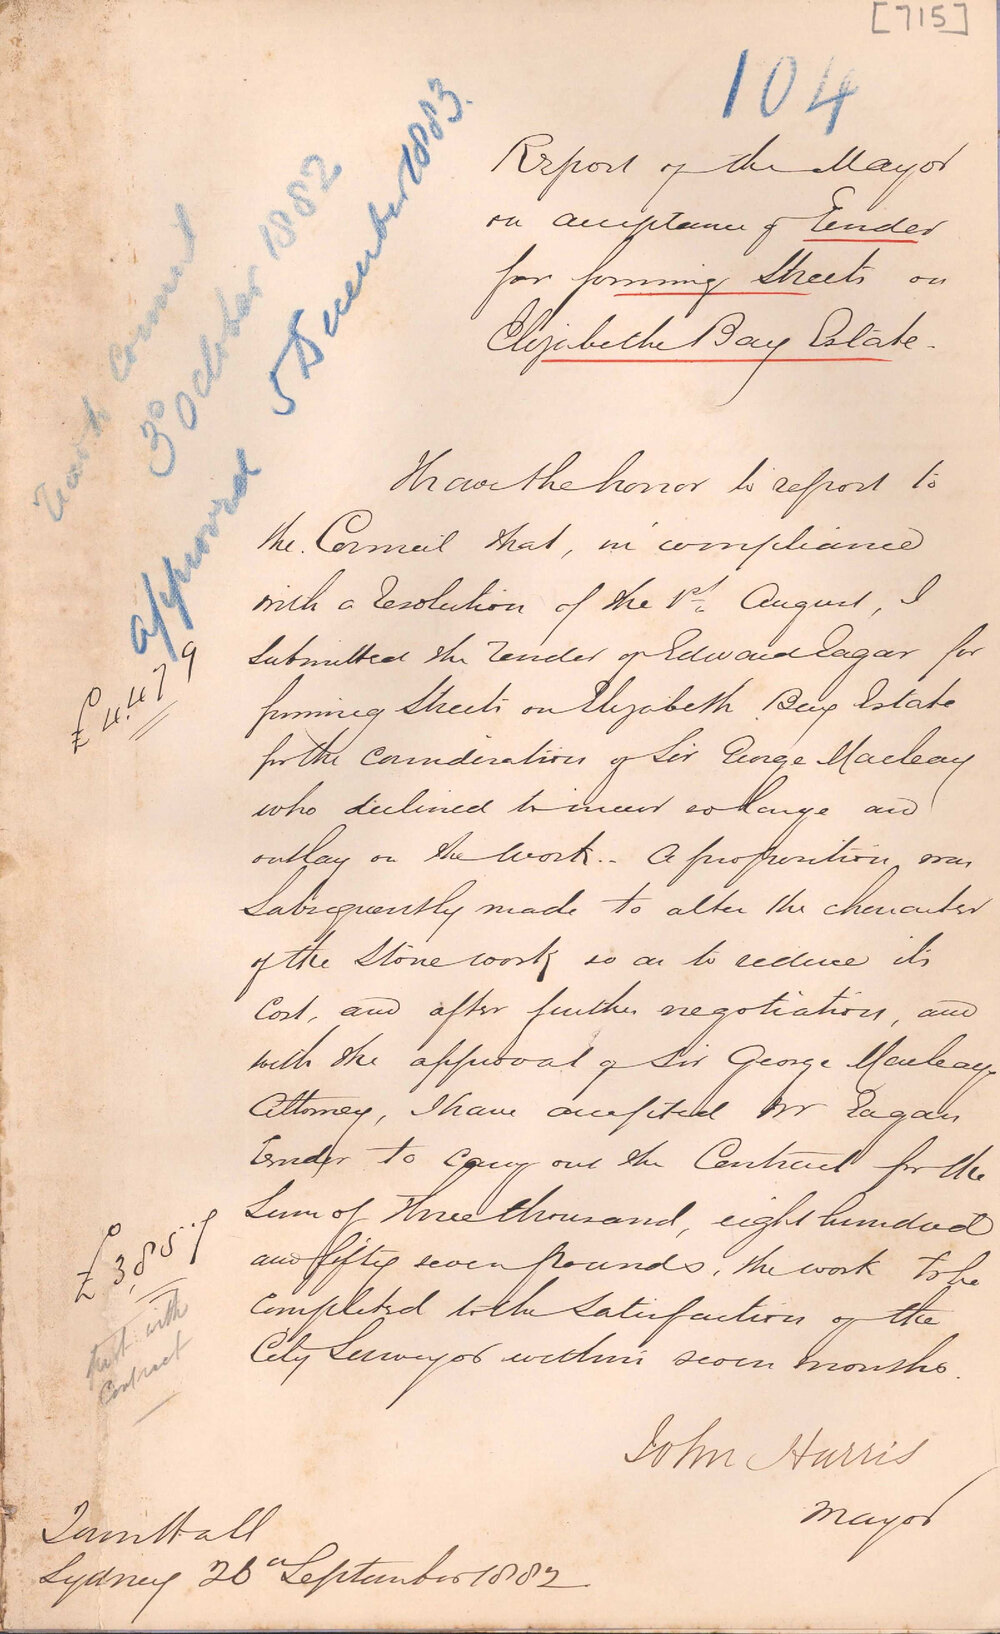 [715]
104
Report of the Mayor
on acceptance of Tender
for forming Streets on
Elizabethe Bay Estate.
Council
3º October 1882
approved 5 December 1883.
I have the honor to report to
the Council that, in compliance
with a Resolution of the 1st August, I
submitted the Tender of Edward Eagar for
forming Streets on Elizabeth Bay Estate
for the consideration of Sir George Macleay
who declined to incur so large an
outlay on the work.. A proposition was
subsequently made to alter the character
of the stone work so as to reduce its
cost, and after further negotiation, and
with the approval of Sir George Macleays
Attorney, I have accepted Mr Eagars
Tender to carry out the Contract for the
Sum of Three thousand, eight hundred
and fifty seven pounds, the work to be
completed to the satisfaction of the
City Surveyor within seven months.
£4.479
£3,857
put with
contract
John Harris
Mayor
Town Hall
Sydney 26th September 1882